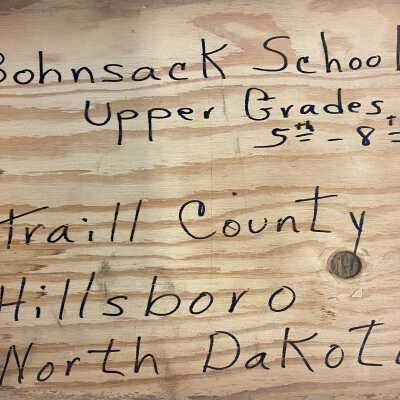 Bohnsack School
Upper Grades
5th - 8th
Traill County
Hillsboro
North Dakota